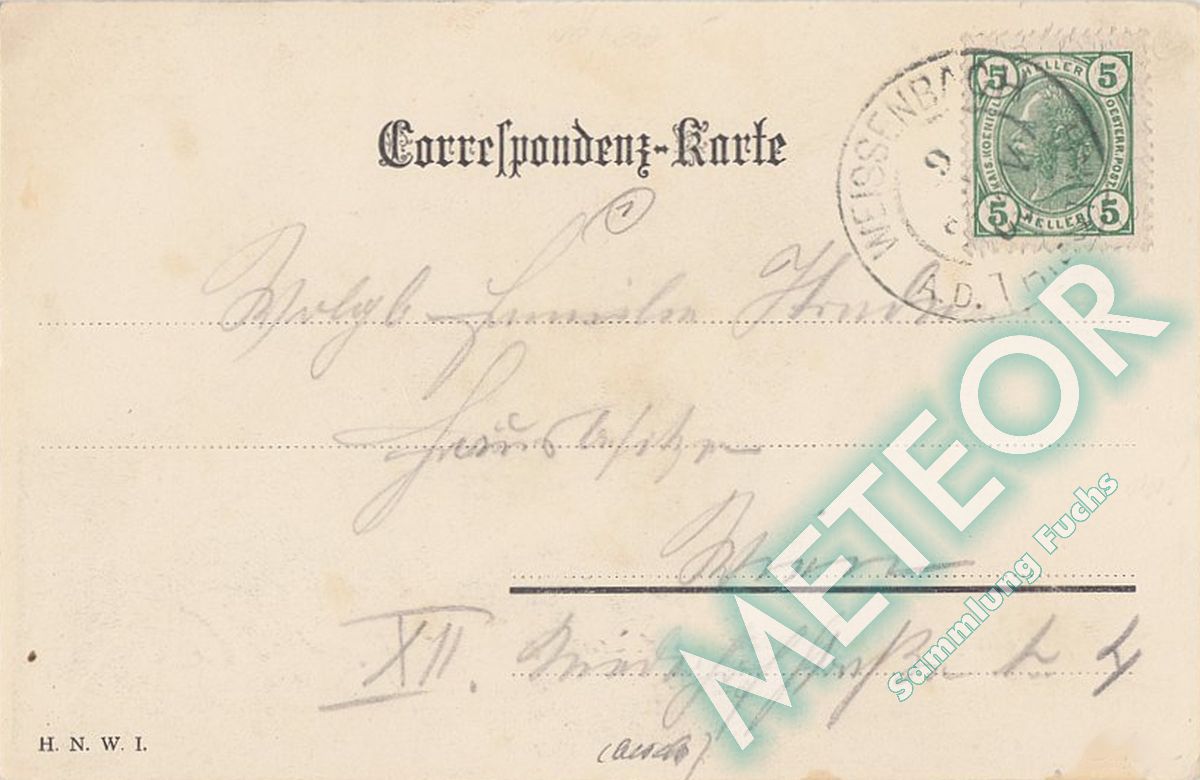 Correspondenz-Karte
5 HELLER 5
KAIS. KOENIGL. OESTERR. POST.
5 HELLER 5
WEISSENBACH A.D. TRIESTING
9
Wohlgb. Familie
Hausbesitzer
Wien
XII.
H. N. W. I.
METEOR
Sammlung Fuchs